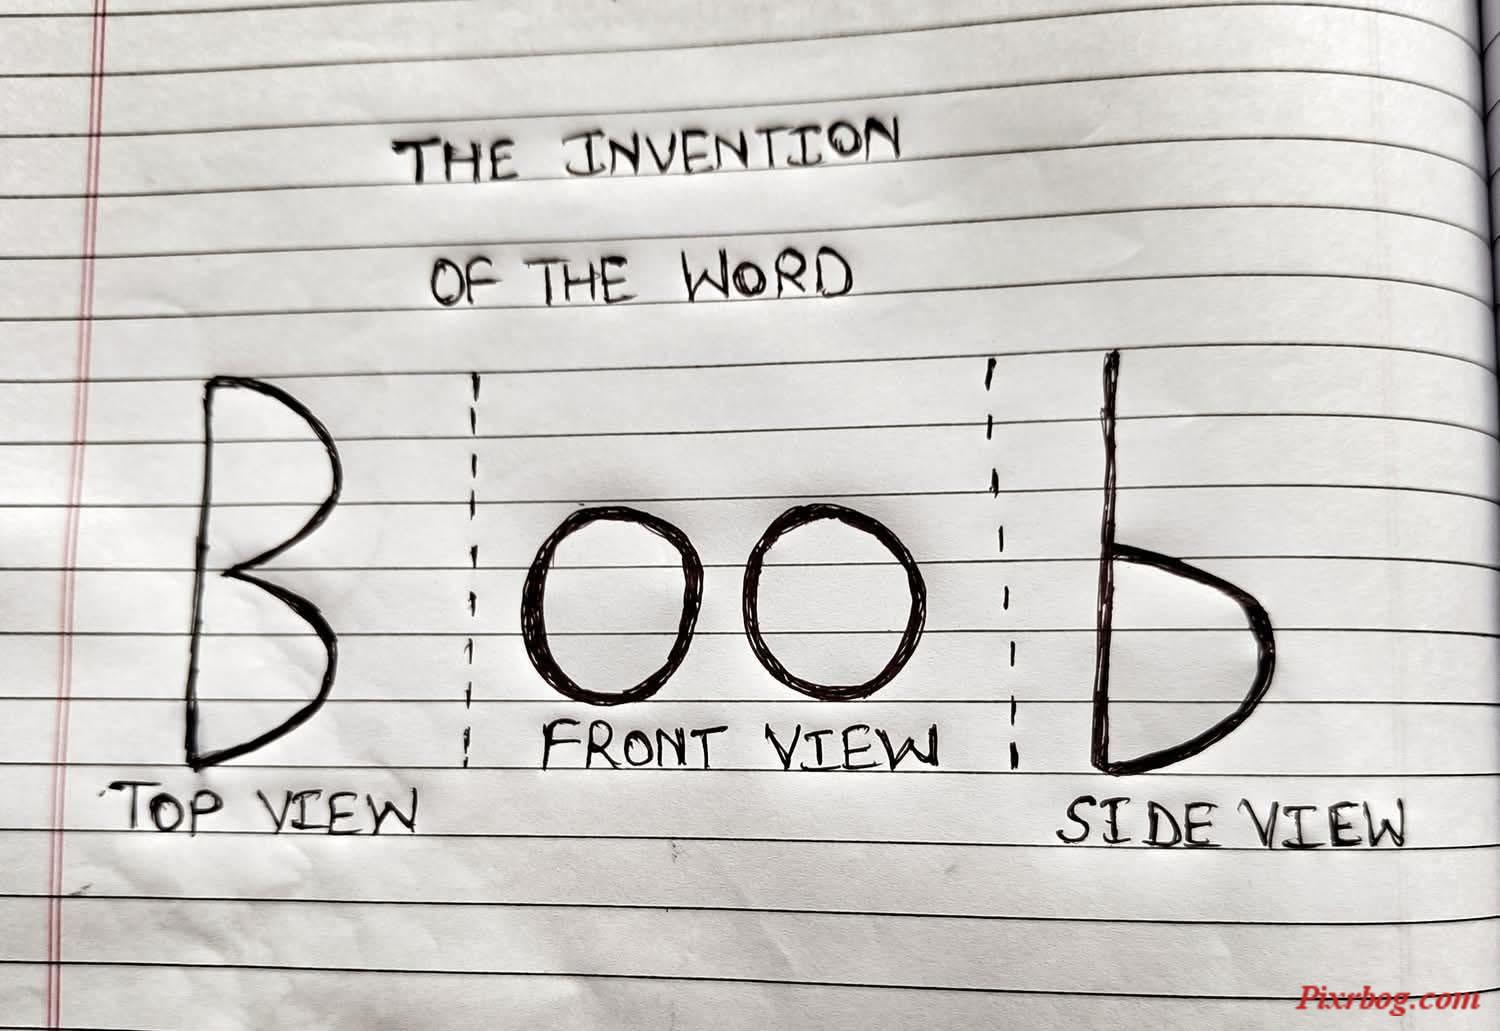 THE INVENTION
OF THE WORD
B oo b
FRONT VIEW
TOP VIEW
SIDE VIEW
Pixrbog.com